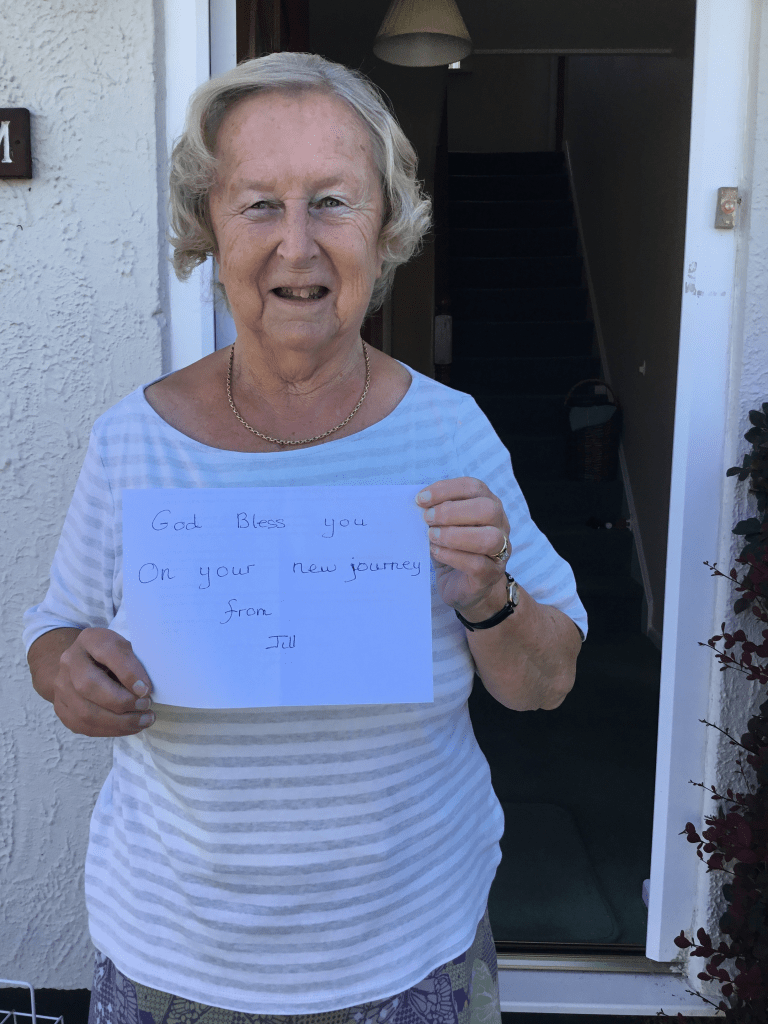 M
God Bless you
On your new journey
from
Jill